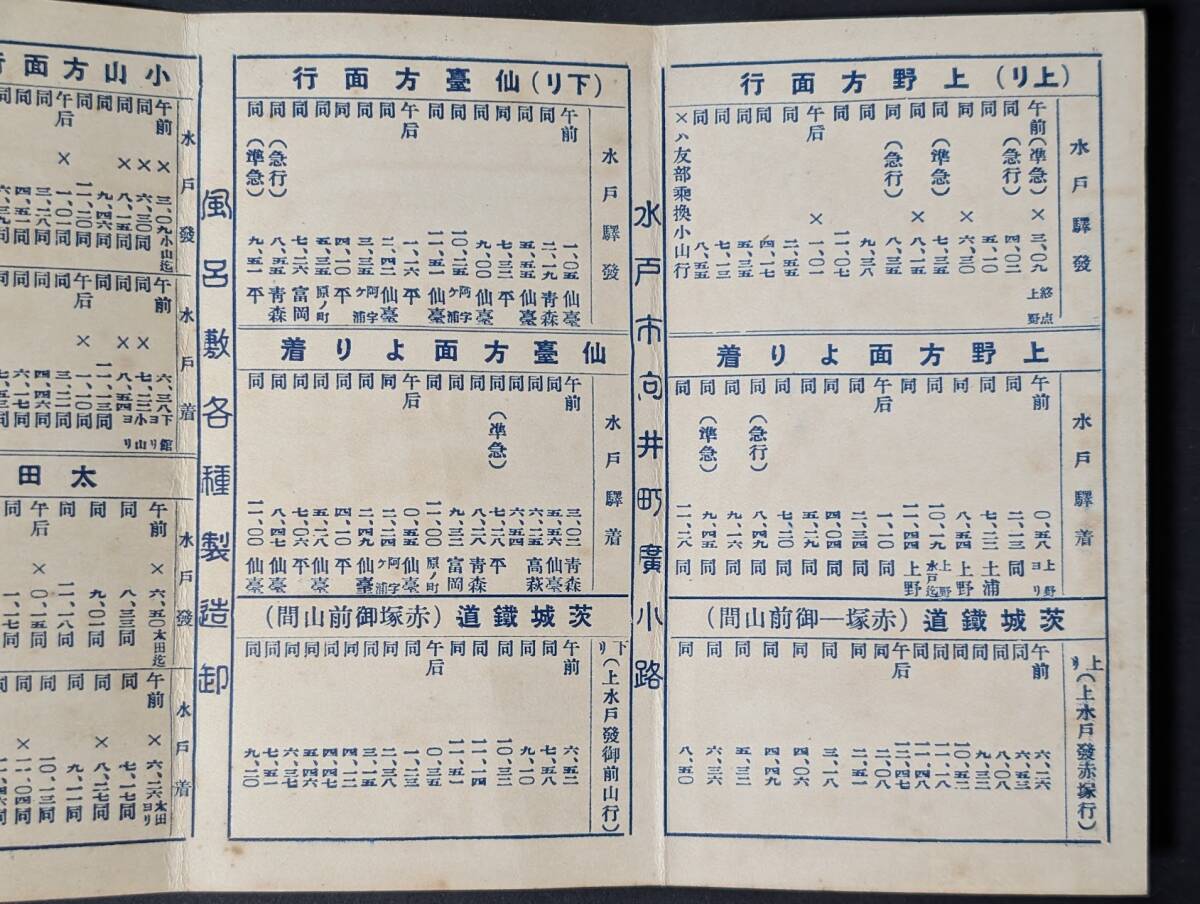 （上リ）上野方面行
水戸驛發
午前（準急）× 三、〇九 終点上野
同（急行） 四、〇二
同 五、一〇
同 × 六、三〇
同（準急） 七、三五
同 × 八、一五
同（急行） 八、三五
同 九、三八
同 一一、〇七
午后 × 一、〇一
同 二、五五
同 四、一七
同 五、三三
同 七、一五
同 八、五五
×ハ友部乗換小山行
上野方面より着
水戸驛着
午前 〇、五八 上野ヨリ
同 二、一三 同
同 七、二二 土浦
同 八、五四 上野
同 一〇、一九 上野水戸迄
同 一一、四四 上野
午后 一、一〇 同
同 二、三四 同
同 四、〇四 同
同 五、〇八 同
同 七、二〇 同
同（急行） 八、四九 同
同 九、一六 同
同（準急） 九、四五 同
同 一一、二八 同
茨城鐵道（赤塚―御前山間）
上り（上水戸發赤塚行）
午前 六、二六
同 六、五三
同 八、〇八
同 九、三三
同 一〇、五二
同 一一、一八
午后
同 二、〇八
同 二、五一
同 三、一八
同 四、〇六
同 四、四九
同 五、三二
同 六、三六
同 八、五〇
水戸市向井町廣小路
（下リ）仙臺方面行
水戸驛發
午前 一、〇五 仙臺
同 二、一九 青森
同 五、五五 仙臺
同 七、三二 平
同 九、〇〇 仙臺
同 一〇、二五 阿字ケ浦
同 一一、五五 仙臺
午后 一、一六 平
同 二、四二 仙臺
同 三、三五 阿字ケ浦
同 四、一〇 平
同 五、三五 原ノ町
同 七、二六 富岡
同（急行） 八、一五 青森
同（準急） 九、五一 平
仙臺方面より着
水戸驛着
午前 三、〇二 青森
同 五、五六 仙臺
同 六、二五 高萩
同 六、五四
同（準急） 七、一八 平
同 八、二八 青森
同 九、三二 富岡
同 一一、〇〇 原ノ町
午后 〇、五五 仙臺
同 二、四四 阿字ケ浦
同 二、四九 仙臺
同 四、一〇 平
同 五、二八 仙臺
同 七、〇六 平
同 八、四七 仙臺
同 一一、〇〇 仙臺
茨城鐵道（赤塚御前山間）
下り（上水戸發御前山行）
午前 六、五二
同 七、五八
同 九、一〇
同 一〇、三二
同 一一、一四
同 一一、五一
午后 〇、三五
同 二、三八
同 三、一五
同 四、一二
同 四、四七
同 五、四六
同 六、三七
同 七、五一
同 九、二〇
風呂敷各種製造卸
小山方面行
水戸發
午前 × 三、〇九 小山迄
同 × 六、三〇 同
同 × 八、一五 同
同 九、四六 同
同 一一、二〇 同
午后 × 一、〇一 同
同 三、二八 同
同 四、五一 同
同 六、三九 同
水戸着
午前 六、三八 下館ヨリ
同 × 七、二二 小山ヨリ
同 × 八、五四
同 一一、一三 同
午后 × 一、一〇 同
同 三、二二 同
同 四、四六 同
同 六、一七 同
同 七、五三 同
太田
水戸發
午前 × 六、五〇 太田迄
同 八、三三 同
同 九、〇一 同
同 一一、一八 同
午后 × 〇、一五 同
同 一、一七 同
水戸着
午前 × 六、二六 太田ヨリ
同 七、一七 同
同 × 八、二七 同
同 九、一一 同
同 一〇、一三 同
同 × 一一、〇四 同